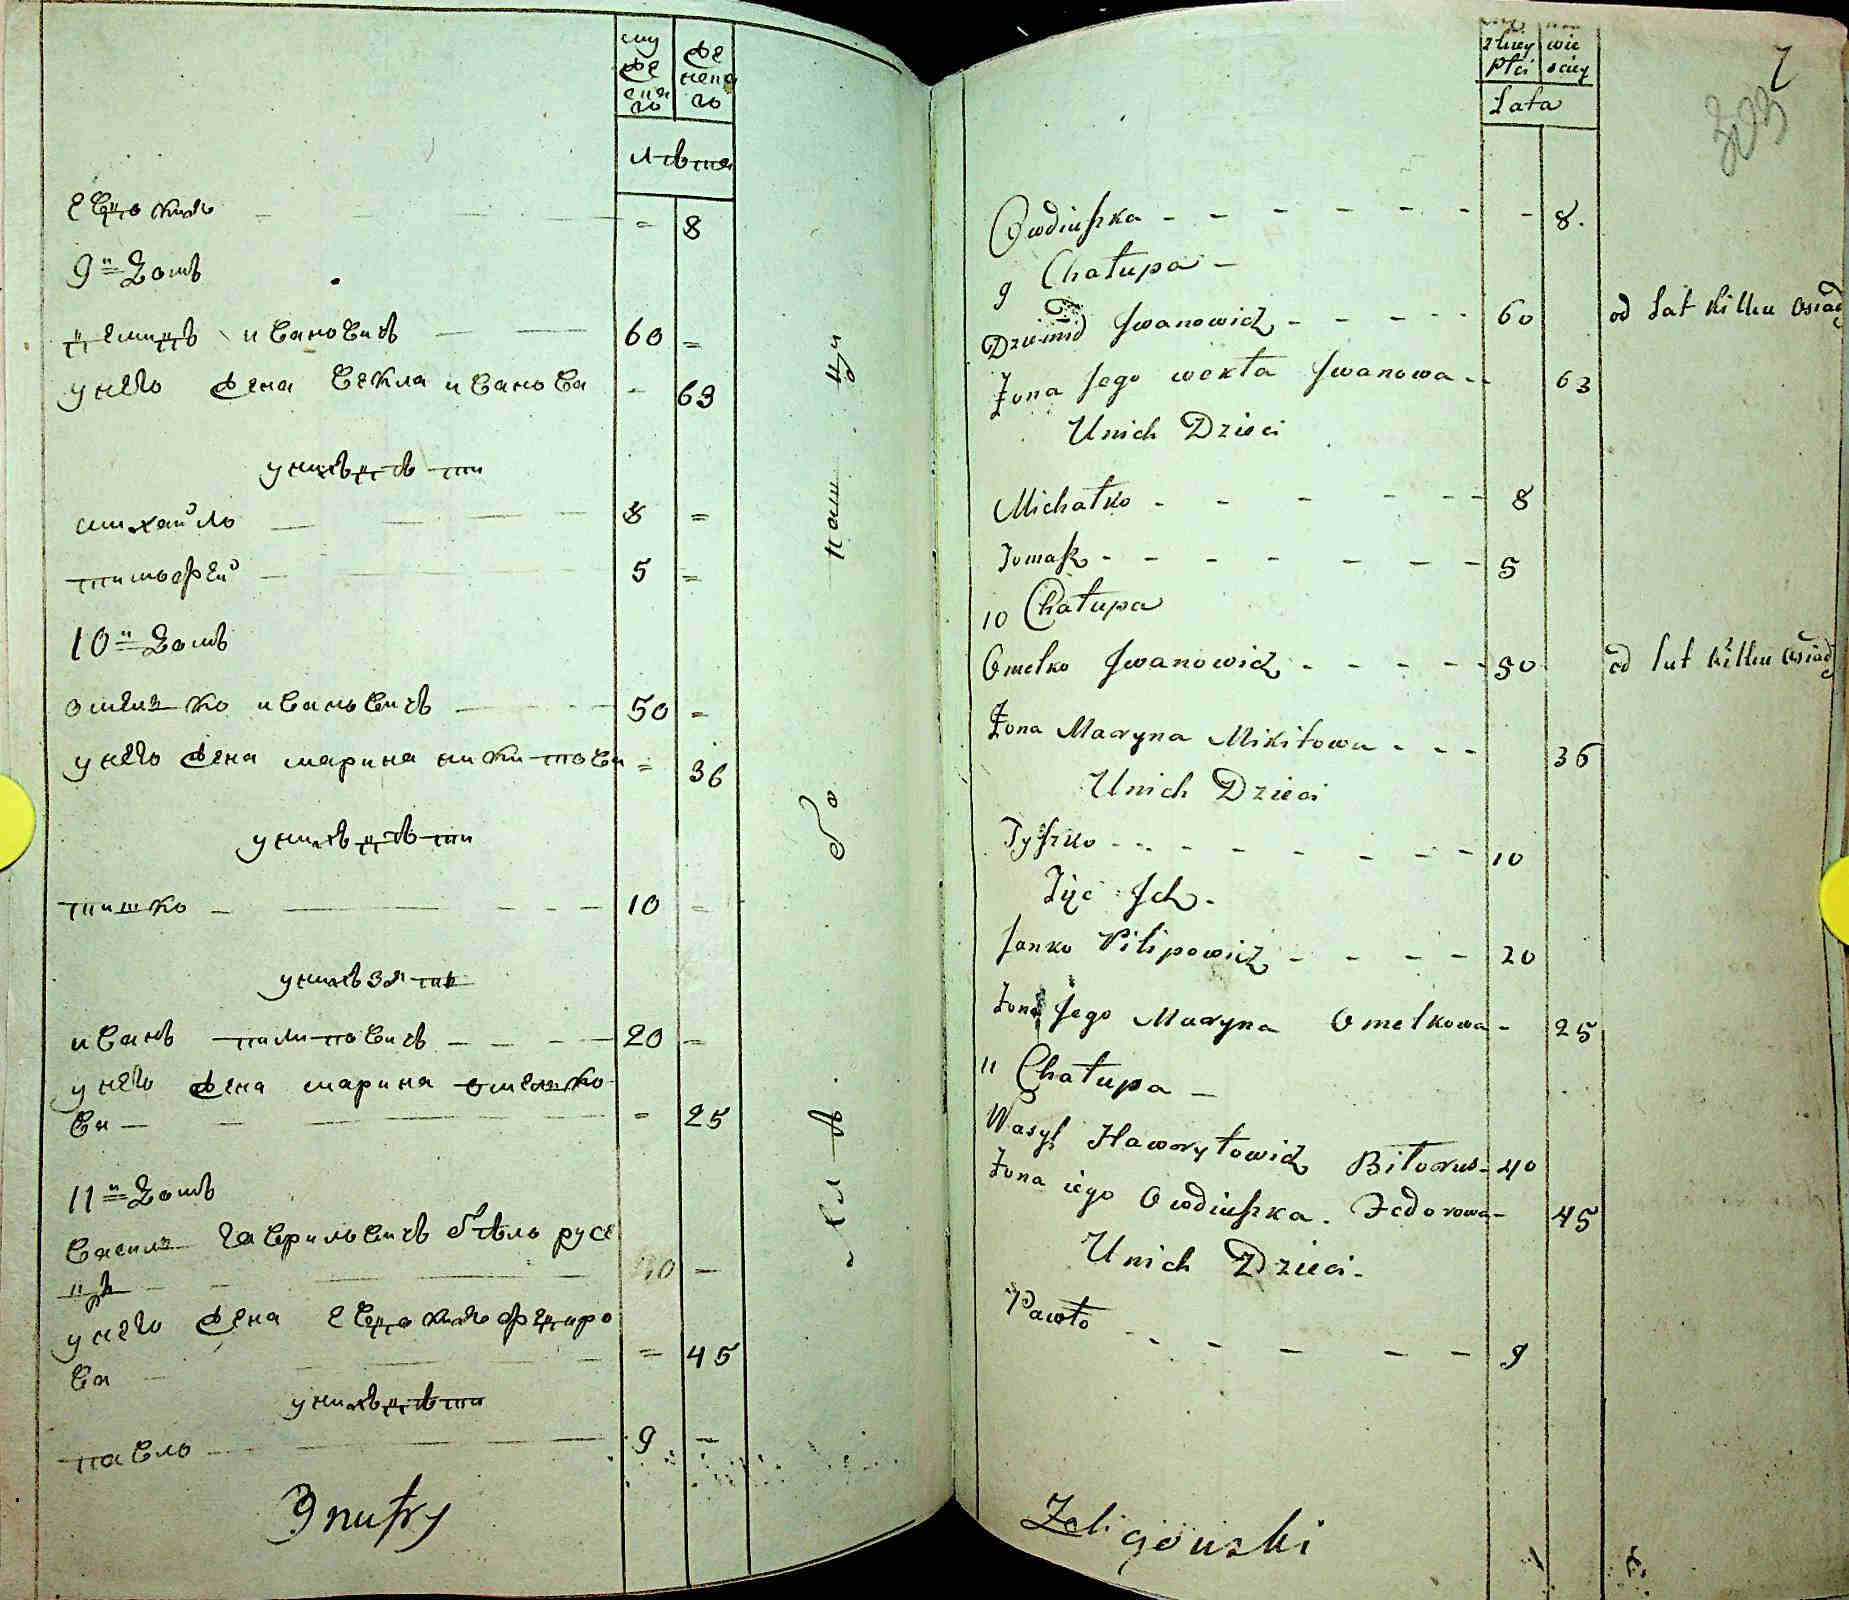 му
же
ска
го
же
нска
го
лѣта
евдокия = 8
9й домъ
демидъ ивановичъ 60 =
у него жена векла иванова - 63
у нихъ дѣти
михайло 8 =
тимофей 5 =
10й домъ
омелько ивановичъ 50 =
у него жена марина никитова = 36
у нихъ дѣти
тишко 10 =
у нихъ зять
иванъ пилиповичъ 20 =
у него жена марина омелько
ва = 25
11й домъ
василь гавриловичъ бѣло русе
цъ 40 =
у него жена евдокия федоро
ва = 45
у нихъ дѣти
павло 9 =
zkiey
płci
wie
sciey
Lata
7
303
Owdiuszka - - - - - - 8.
9 Chałupa -
Dziemid Jwanowicz - - - - - 60 od lat kilku osiad
Żona Jego wekła Jwanowa - - 63
U nich Dzieci
Michałko - - - - - 8
Tomasz - - - - - - - 5
10 Chałupa
Omelko Jwanowicz - - - - - 50 od lat kilku osiad
Żona Maryna Mikitowa - - - 36
U nich Dzieci
Tyszko - - - - - - - 10
Zięć Jch -
Janko Pilipowicz - - - - - 20
Żona Jego Maryna Omelkowa - 25
11 Chałupa -
Wasyl Hawryłowicz Biłorus - 40
Żona iego Owdiuszka Fedorowa - 45
U nich Dzieci -
Pawło - - - - - - 9
Żeligowski